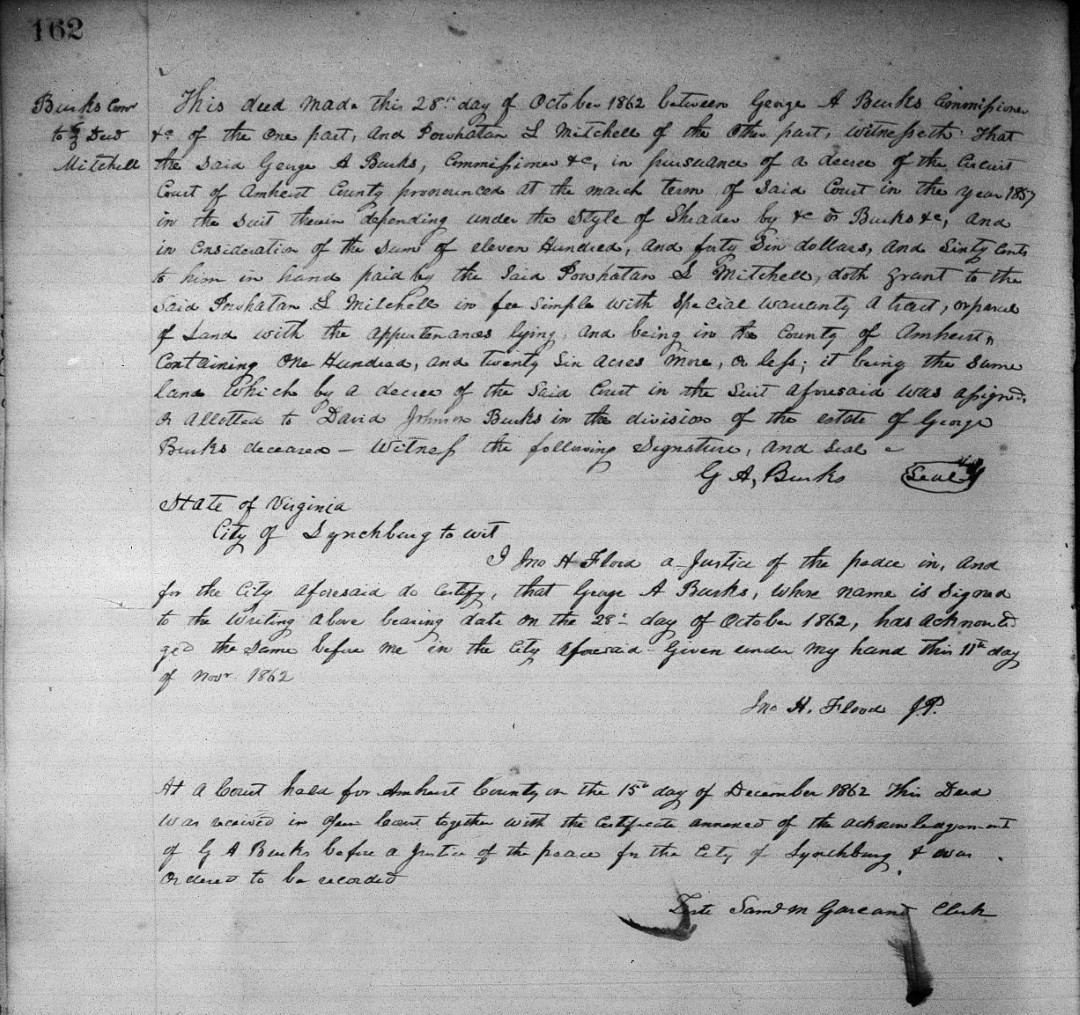 162
Burks Comr
to } Deed
Mitchell
This deed made this 28th day of October 1862 between George A Burks Commissioner
&c of the one part, and Powhatan L Mitchell of the other part, Witnesseth That
the said George A Burks, Commissioner &c, in pursuance of a decree of the Circuit
Court of Amherst County pronounced at the march term of said Court in the year 1857
in the suit therein depending under the Style of Shrader by &c vs Burks &c, and
in consideration of the sum of eleven Hundred, and forty Six dollars, and Sixty Cents
to him in hand paid by the said Powhatan L Mitchell, doth grant to the
said Powhatan L Mitchell in fee simple with Special Warranty a tract, or parcel
of Land with the appurtenances lying, and being in the County of Amherst,
Containing One Hundred, and twenty Six acres more, or less; it being the same
land which by a decree of the said Court in the Suit aforesaid was assigned,
or allotted to David Johnson Burks in the division of the estate of George
Burks deceased – Witness the following Signature, and seal –
G A, Burks Seal
State of Virginia
City of Lynchburg to wit
I Jno H Flood a Justice of the peace in, and
for the City aforesaid do Certify, that George A Burks, whose name is Signed
to the Writing above bearing date on the 28th day of October 1862, has acknowled
ged the same before me in the City aforesaid – Given under my hand this 11th day
of Novr 1862
Jno H. Flood J.P.
At a Court held for Amherst County on the 15th day of December 1862 This Deed
was received in open Court together with the Certificate annexed of the acknowledgement
of G A Burks before a Justice of the peace for the City of Lynchburg & was
Ordered to be recorded
Teste Saml M Garland Clerk